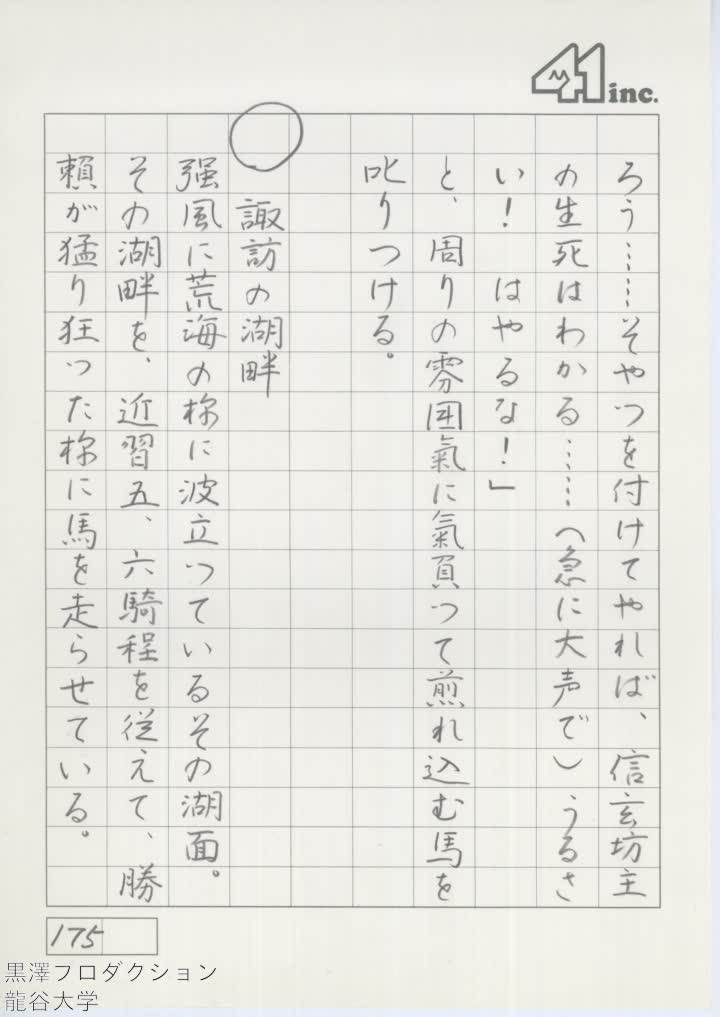 41 inc.
ろう……そやつを付けてやれば、信玄坊主
の生死はわかる……(急に大声で)うるさ
い!　はやるな!」
と、周りの雰囲氣に氣負つて煎れ込む馬を
叱りつける。
○　諏訪の湖畔
強風に荒海の様に波立つているその湖面。
その湖畔を、近習五、六騎程を従えて、勝
頼が猛り狂つた様に馬を走らせている。
175
黒澤プロダクション
龍谷大学